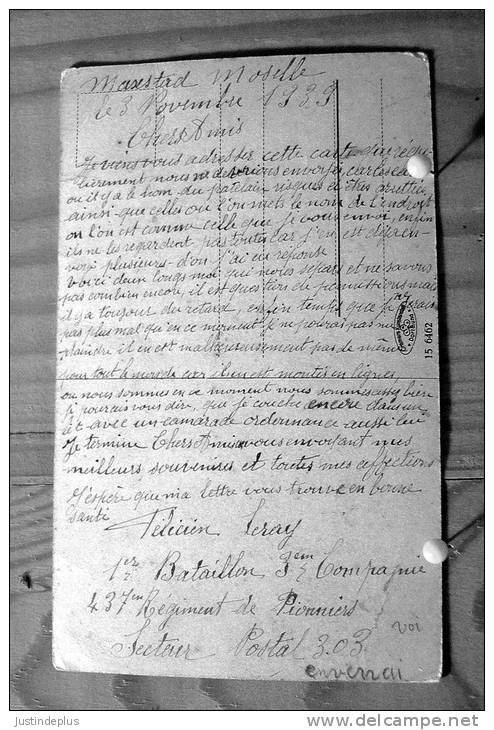 Maxstad Moselle
le 3 Novembre 1939
Chers Amis
Je viens vous adresser cette carte qui régu-
lièrement nous ne devrions envoyer, cartes
ou il y a le nom du patelain risques d'être arrêtter
ainsi que celles où l'on mets le nom de l'endroit
ou l'on est comme celle que je vous envoi, enfin
ils ne les regardent pas toutes car j'en est déja en-
voyé plusieurs d'on j'ai eu réponse
voici deux longs moi qui nous sépare et ne savons
pas combien encore, il est question de permissions mais
il y a toujour du retard, enfin temps que je serais
pas plus mal qu'en ce moment je ne pourais pas me
plaindre il en est malheureusement pas de même
pour tout le monde car il en est montés en lignes,
ou nous sommes en ce moment nous sommes assez bien
je pourais vous dire, que je couche encore dans un
lit avec un camarade ordonnance aussi lui
Je termine Chers Amis vous envoyant mes
meilleurs souvenirs et toutes mes affections
J'éspère que ma lettre vous trouve en bonne
santé
Félicien Leray
1er Bataillon 3em Compagnie
437em Régiment de Pionniers
Secteur Postal 303
voi
enverrai
15 6462
justindeplus
www.delcampe.net